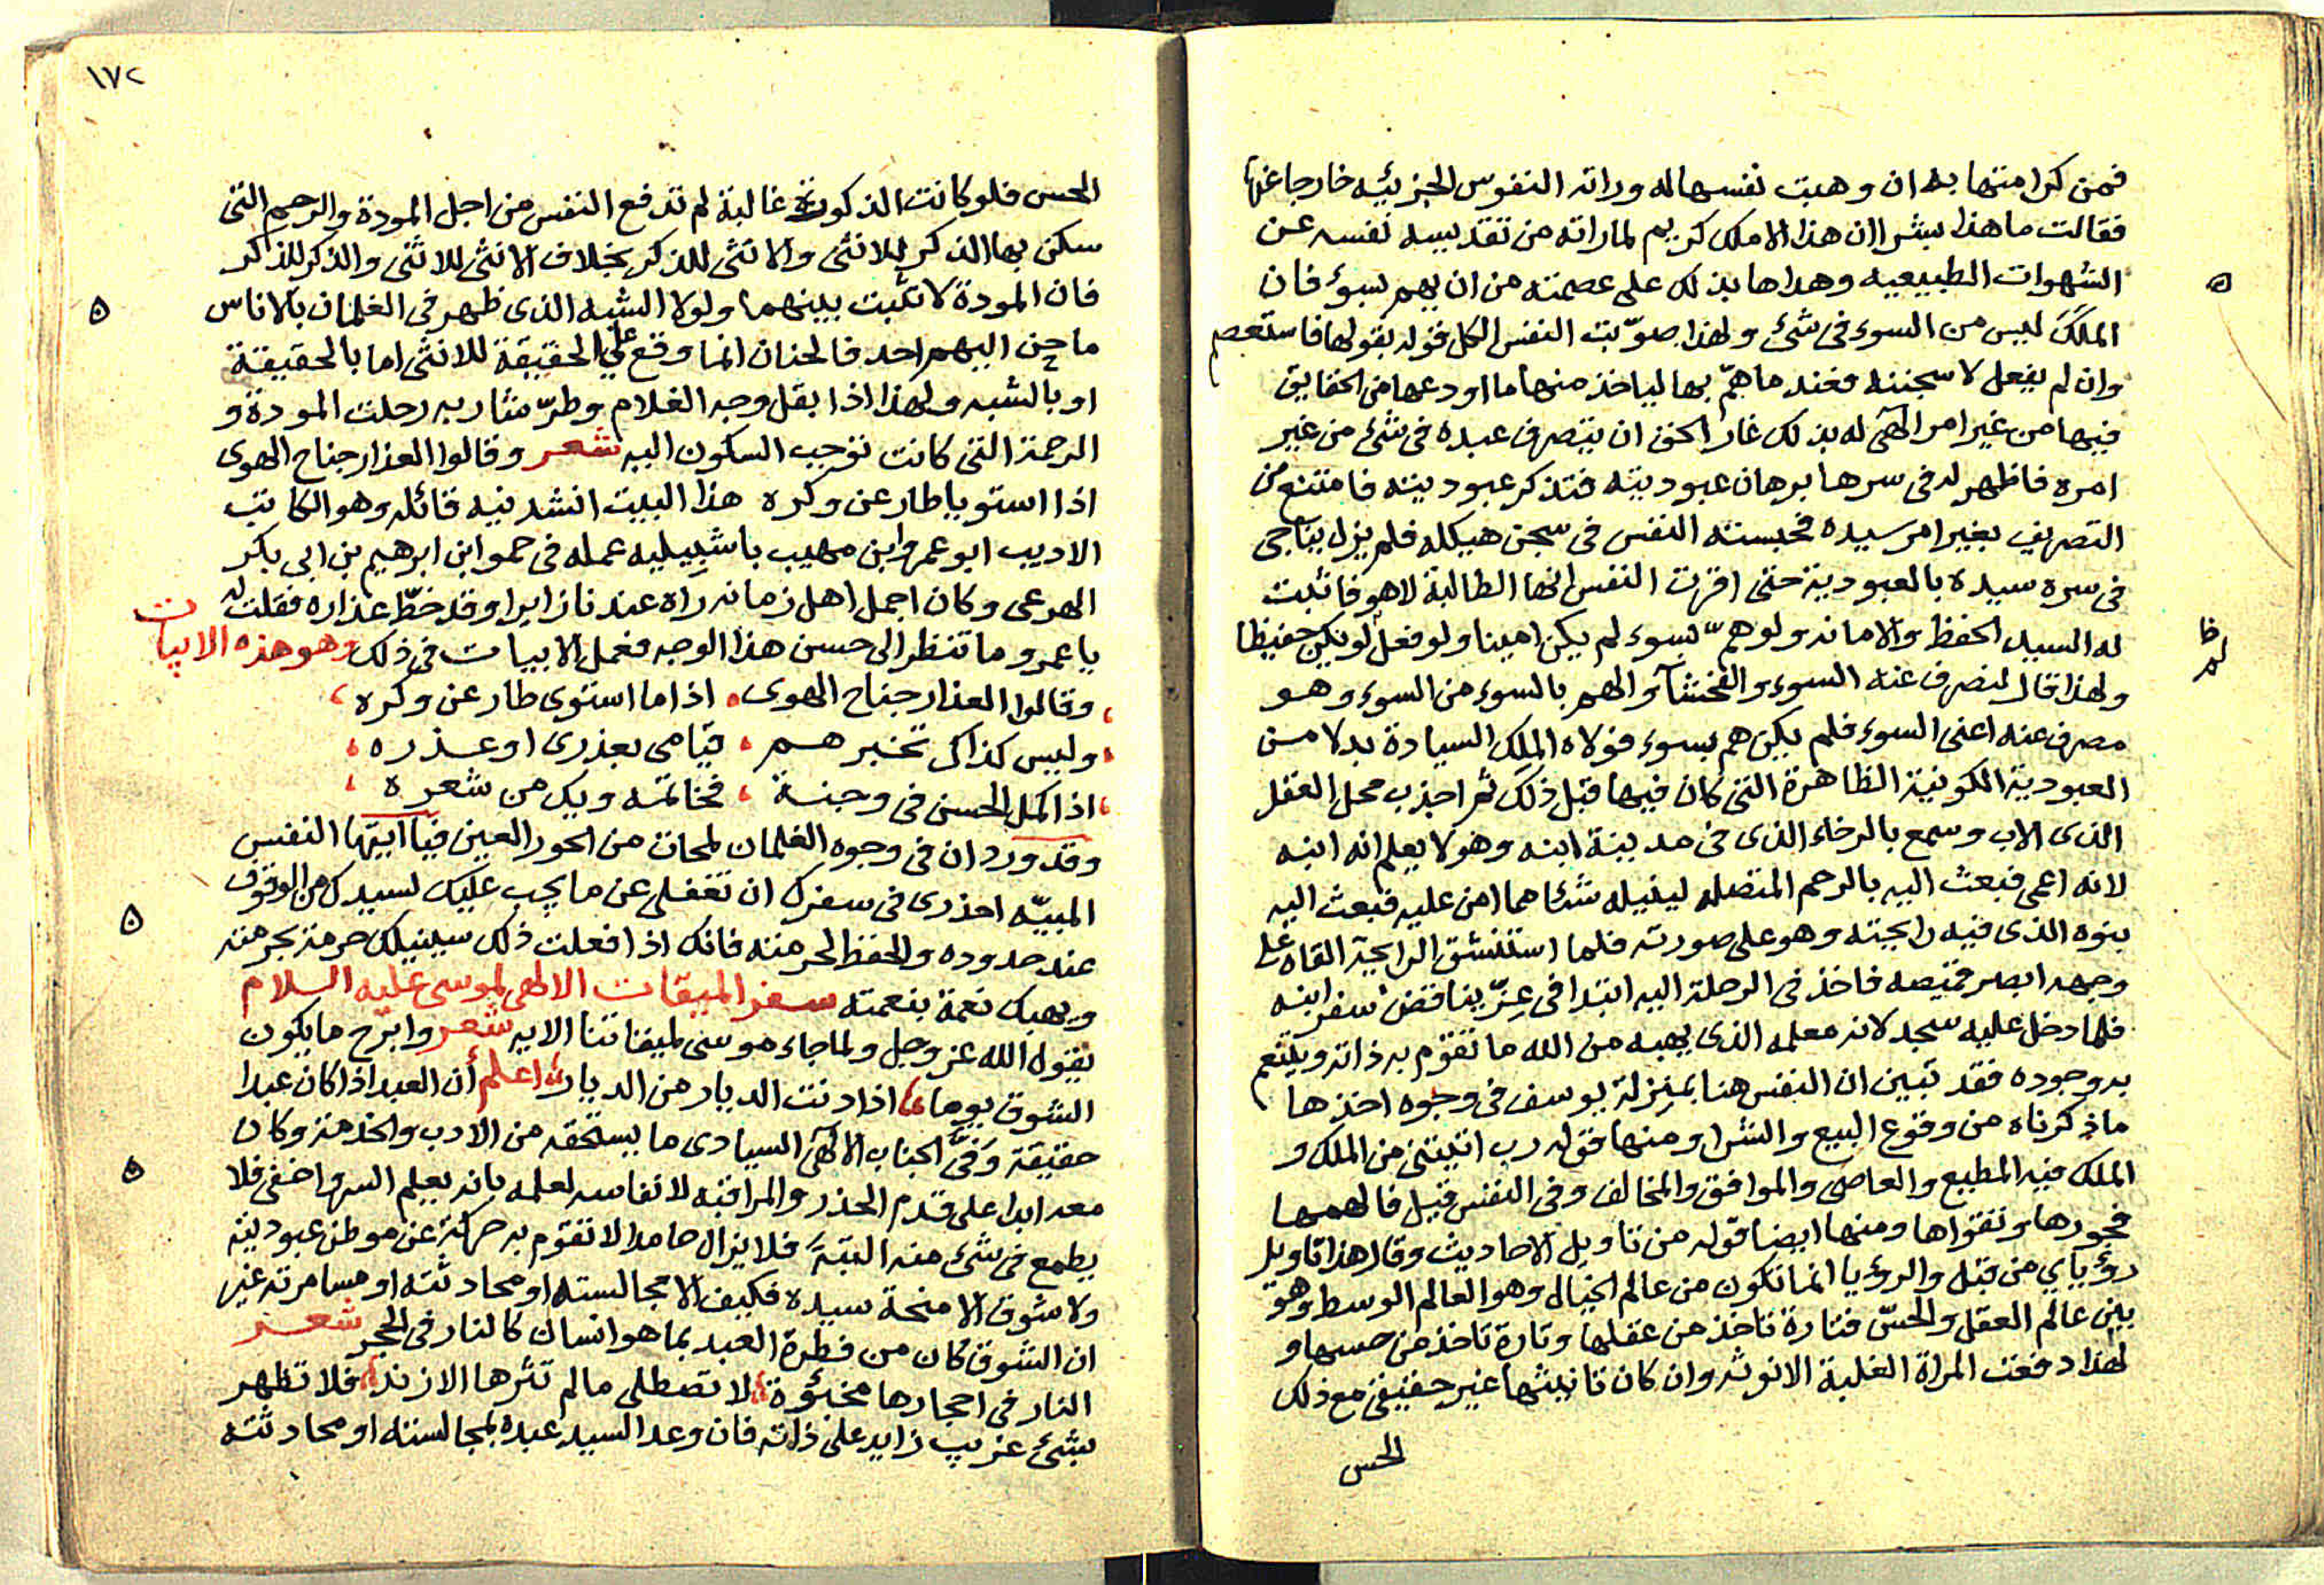 فمن كرامتها به ان وهبت نفسها له وراته النفوس الجزئيه خارجا عنها
فقالت ما هذا بشرا ان هذا الا ملك كريم لما راته من تقديسه نفسه عن
الشهوات الطبيعيه وهداها بذلك على عصمته من ان يهم بسوء فان
الملك ليس من السوء فى شئ ولهذا صوّبت النفس الكل قوله بقولها فاستعصم
وان لم يفعل لاسجننه فعند ما همّ بها لياخذ منها ما اودعها من الحقايق
فيها من غير امر الهى له بذلك غار الحق ان يتصرف عبده فى شئ من غير
امره فاظهر له فى سرها برهان عبوديته فتذكر عبوديته فامتنع من
التصريف بغير امر سيده فحبسته النفس فى سجن هيكله فلم يزل يناجى
فى سره سيده بالعبودية حتى اقرت النفس انها الطالبة لا هو فاثبت
له السيد الحفظ والامانه ولو همّ بسوء لم يكن امينا ولو فعل لو يكن حفيظا
ظا
لم
ولهذا قال لنصرف عنه السوء والفحشآ والهم بالسوء من السوء وهو
مصرف عنه اعنى السوء فلم يكن هم بسوء فولاه الملك السيادة بدلا من
العبودية الكونية الظاهرة التى كان فيها قبل ذلك ثم اجدب محل العقل
الذى الاب وسمع بالرخاء الذى فى مدينة ابنه وهو لا يعلم انه ابنه
لانه اعمى فبعث اليه بالرحم المتصله لينيله شئا مما امن عليه فبعث اليه
بنوه الذى فيه رايحته وهو على صورته فلما استنشق الرايحة القاه على
وجهه ابصر قميصه فاخذ فى الرحلة اليه ابتدا فى عزّ يناقض سفر ابنه
فلما دخل عليه سجد لانه معلمه الذى يهبه من الله ما تقوم به ذاته ويتنعم
به وجوده فقد تبين ان النفس هنا بمنزلة يوسف فى وجوه اخذها
ما ذكرناه من وقوع البيع والشرا ومنها قوله رب اتيتنى من الملك و
الملك فيه المطيع والعاصى والموافق والمخالف وفى النفس قيل فالهمها
فجورها وتقواها ومنها ايضا قوله من تاويل الاحاديث وقال هذا تاويل
رؤياي من قبل والرؤيا انما تكون من عالم الخيال وهو العالم الوسط وهو
بين عالم العقل والحسّ فتارة تاخذ من عقلها وتارة تاخذ من حسها و
لهذا دفعت المراة الغلبة الانوثه وان كان تانيثها غير حقيقى مع ذلك
الحس
١٧٢
الحس فلو كانت الذكورة غالبة لم تدفع النفس من اجل المودة والرحم التى
سكن بها الذكر للانثى والانثى للذكر بخلاف الانثى للانثى والذكر للذاكر
فان المودة لا تثبت بينهما ولولا الشبه الذى ظهر فى الغلمان بالاناس
ما حن اليهم احد فالحنان انما وقع على الحقيقة للانثى اما بالحقيقة
او بالشبه ولهذا اذا بقل وجه الغلام وطرّ شاربه رحلت المودة و
الرحمة التى كانت توجب السكون اليه شعر وقالوا العذار جناح الهوى
اذا استويا طار عن وكره هذا البيت انشدنيه قائله وهو الكاتب
الاديب ابو عمرو ابن مهيب باشبيليه عمله فى حمو ابن ابرهيم بن ابى بكر
الهرعى وكان اجمل اهل زمانه راه عندنا زايرا وقد خطّ عذاره فقلت له
يا عمرو ما تنظر الى حسن هذا الوجه فعمل الابيات فى ذلك وهو هذه الابيات
وقالوا العذار جناح الهوى اذا ما استوى طار عن وكره
وليس كذاك تخبرهم قيامى بعذرى او عذره
اذا كمل الحسن فى وجنة فخاتمته ويك من شعره
وقد ورد ان فى وجوه الغلمان لمحات من الحور العين فيا ايتها النفس
المبيّه احذرى فى سفرك ان تغفلى عن ما يجب عليك لسيدك من الوقوف
عند حدوده والحفظ لحرمته فانك اذا فعلت ذلك سينيلك حرمة بحرمته
ويهبك نعمة بنعمته سفر الميقات الالهى لموسى عليه السلام
يقول الله عز وجل ولما جاء موسى لميقاتنا الايه شعر وابرّح ما يكون
الشوق يوما اذا دنت الديار من الديار اعلم أن العبد اذا كان عبدا
حقيقة وَفَّى الجناب الالهى السيادى ما يستحقه من الادب والخدمة وكان
معه ابدا على قدم الحذر والمراقبه لانفاسه لعلمه بانه يعلم السر واخفى فلا
يطمع فى شئ منه البتة فلا يزال حامدا لا تقوم به حركة عن موطن عبوديته
ولا شوق الا منحة سيده فكيف الا مجالسته او محادثته او مسامرته غير
ان الشوق كان من فطرة العبد بما هو انسان كالنار فى الحجر شعر
النار فى احجارها مخبؤة لا تصطلى ما لم تثرها الازند فلا تظهر
بشئ غريب زايد على ذاته فان وعد السيد عبده بمجالسته او محادثته